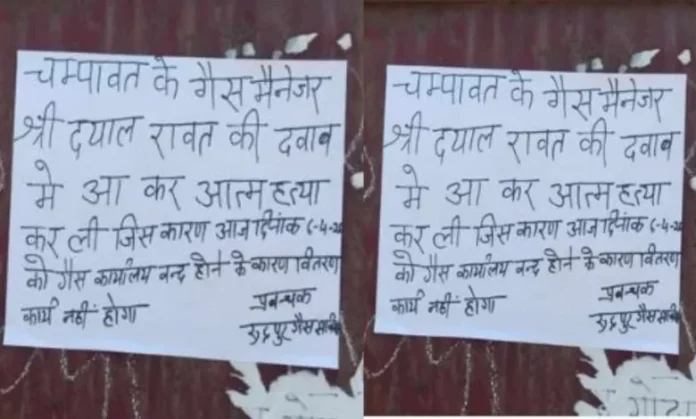 चम्पावत के गैस मैनेजर
श्री दयाल रावत की दवाब
मे आ कर आत्म हत्या
कर ली जिस कारण आज दिनांक
को गैस कार्यालय बन्द होने के कारण वितरण
कार्य नहीं होगा
प्रबन्धक
रुद्रपुर गैस
चम्पावत के गैस मैनेजर
श्री दयाल रावत की दवाब
मे आ कर आत्म हत्या
कर ली जिस कारण आज दिनांक
को गैस कार्यालय बन्द होने के कारण वितरण
कार्य नहीं होगा
प्रबन्धक
रुद्रपुर गैस